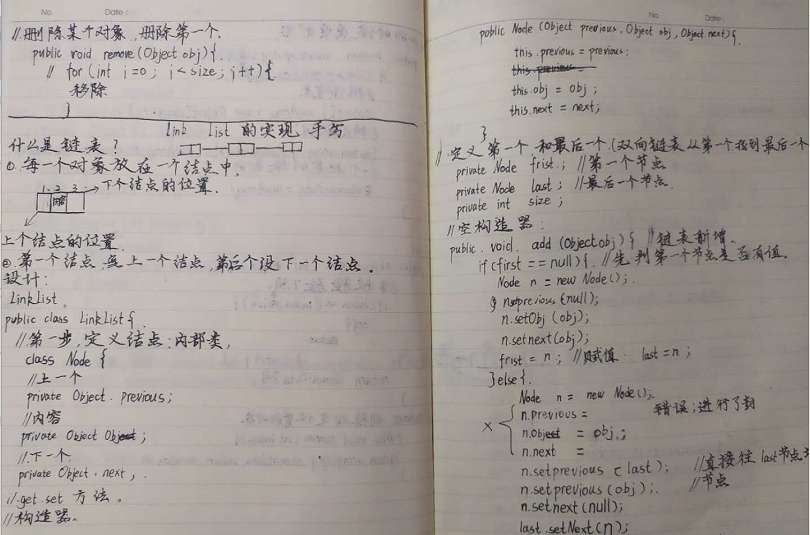 No. Date:
//删除某个对象,删除第一个.
public void remove (Object obj) {.
// for (int i=0; i<size; i++) {
移除
}
Link List 的实现 手写
什么是链表?
①.每一个对象放在一个结点中.
1 2 3 →下个结点的位置.
上个结点的位置
② 第一个结点,无上一个结点,第后个没下一个结点.
设计:
LinkList.
public class LinkList {
//第一步,定义结点:内部类,
class Node {
//上一个
private Object. previous;
//内容
private Object Object;
//.下一个.
private Object. next,.
//.get.set 方法.
//构造器.
No. Date:
public Node (Object previous, Object obj, Object next) {.
this.previous = previous;
this.obj = obj;
this.next = next;
}
//定义第一个和最后一个.(双向链表从第一个指到最后一个
private Node frist.; //第一个节点
private Node last; //最后一个节点.
private int size;
//空构造器:
public. void. add (Object obj) { //链表新增.
if (first == null) { //先判第一个节点是否有值.
Node n = new Node();.
n.setprevious (null);
n.setObj (obj);
n.setnext(obj);
frist = n; //赋值. last=n;
}else {.
Node n = new Node();.
n.previous = 错误;进行了封
× n.Object = obj.;
n.next =
n.setprevious (last); //直接往 last节点
n.setprevious (obj);. //节点
n.setnext (null);
last.setNext(n);